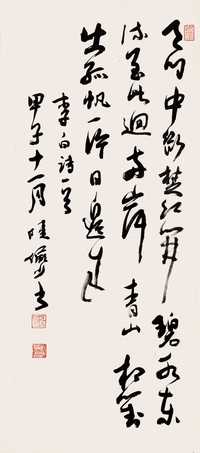 天門中斷楚江開碧水東
流至此迴兩岸青山相對
出孤帆一片日邊來
李白詩一首
甲子十一月陸儼少書